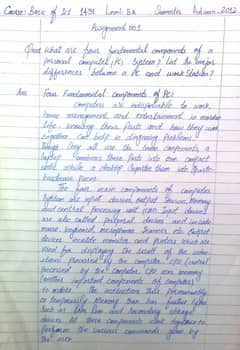 Course: Basic of Ict 1431 Level: BA Semester Autumn-2012
Assignment No 1
Q no 1 what are four fundamental components of a
personal computer (PC) System? List the major
differences between a PC and work Station?
Ans Four Fundamental components of PC:
Computers are indispensible to work
home management and entertainment in modern
life knowing their parts and how they work
together can help in diagnosing problems.
things they all use the same components a
laptop combines these parts into one compact
unit while a desktop separates them into
hardware pieces.
The four main components of computer
System are input devices, output devices, Memory
and central processing unit (CPU) Input devices
are also called devices and include
mouse, keyboard, microphone, scanner etc. Output
devices include monitor and printers which are
used for displaying the result of the
processed by the computer. CPU (central
processed by the computer. CPU
another important components of computer
the instructions
or temporarily. Memory
such as Ram Rom and storage
devices. All these components work together to
perform the various commands given by
the user